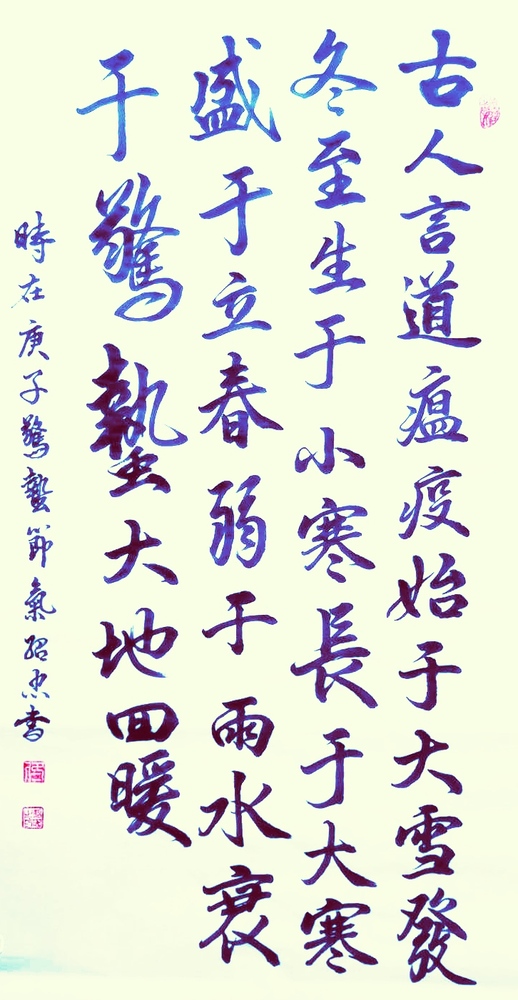 古人言道瘟疫始于大雪發
冬至生于小寒長于大寒
盛于立春弱于雨水衰
于驚蟄大地回暖
時在庚子驚蟄節氣紹忠書